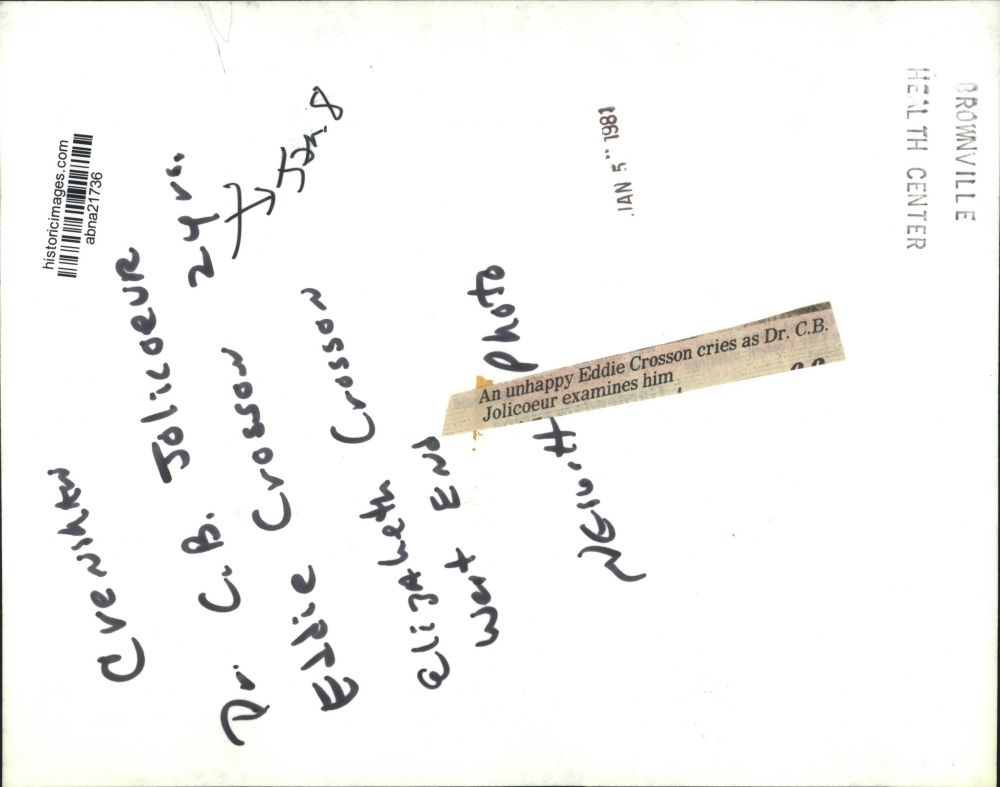 historicimages.com
abna21736
Crenshaw
Dr. C.B. Jolicoeur
Eddie Crosson 2 yrs.
Jan. 8
Elizabeth Crosson
West End
Photo
An unhappy Eddie Crosson cries as Dr. C.B.
Jolicoeur examines him
JAN 5 1981
BROWNVILLE
HEALTH CENTER